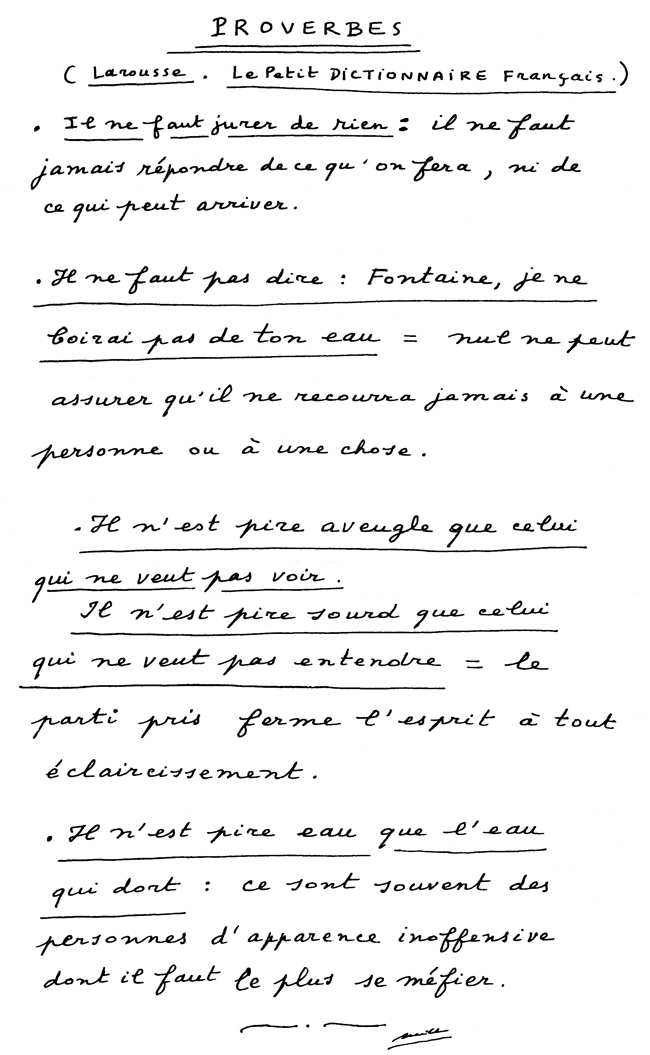 PROVERBES
( Larousse . Le Petit DICTIONNAIRE Français.)
. Il ne faut jurer de rien : il ne faut
jamais répondre de ce qu'on fera, ni de
ce qui peut arriver.
. Il ne faut pas dire : Fontaine, je ne
boirai pas de ton eau = nul ne peut
assurer qu'il ne recourra jamais à une
personne ou à une chose.
. Il n'est pire aveugle que celui
qui ne veut pas voir.
Il n'est pire sourd que celui
qui ne veut pas entendre = le
parti pris ferme l'esprit à tout
éclaircissement.
. Il n'est pire eau que l'eau
qui dort : ce sont souvent des
personnes d'apparence inoffensive
dont il faut le plus se méfier.